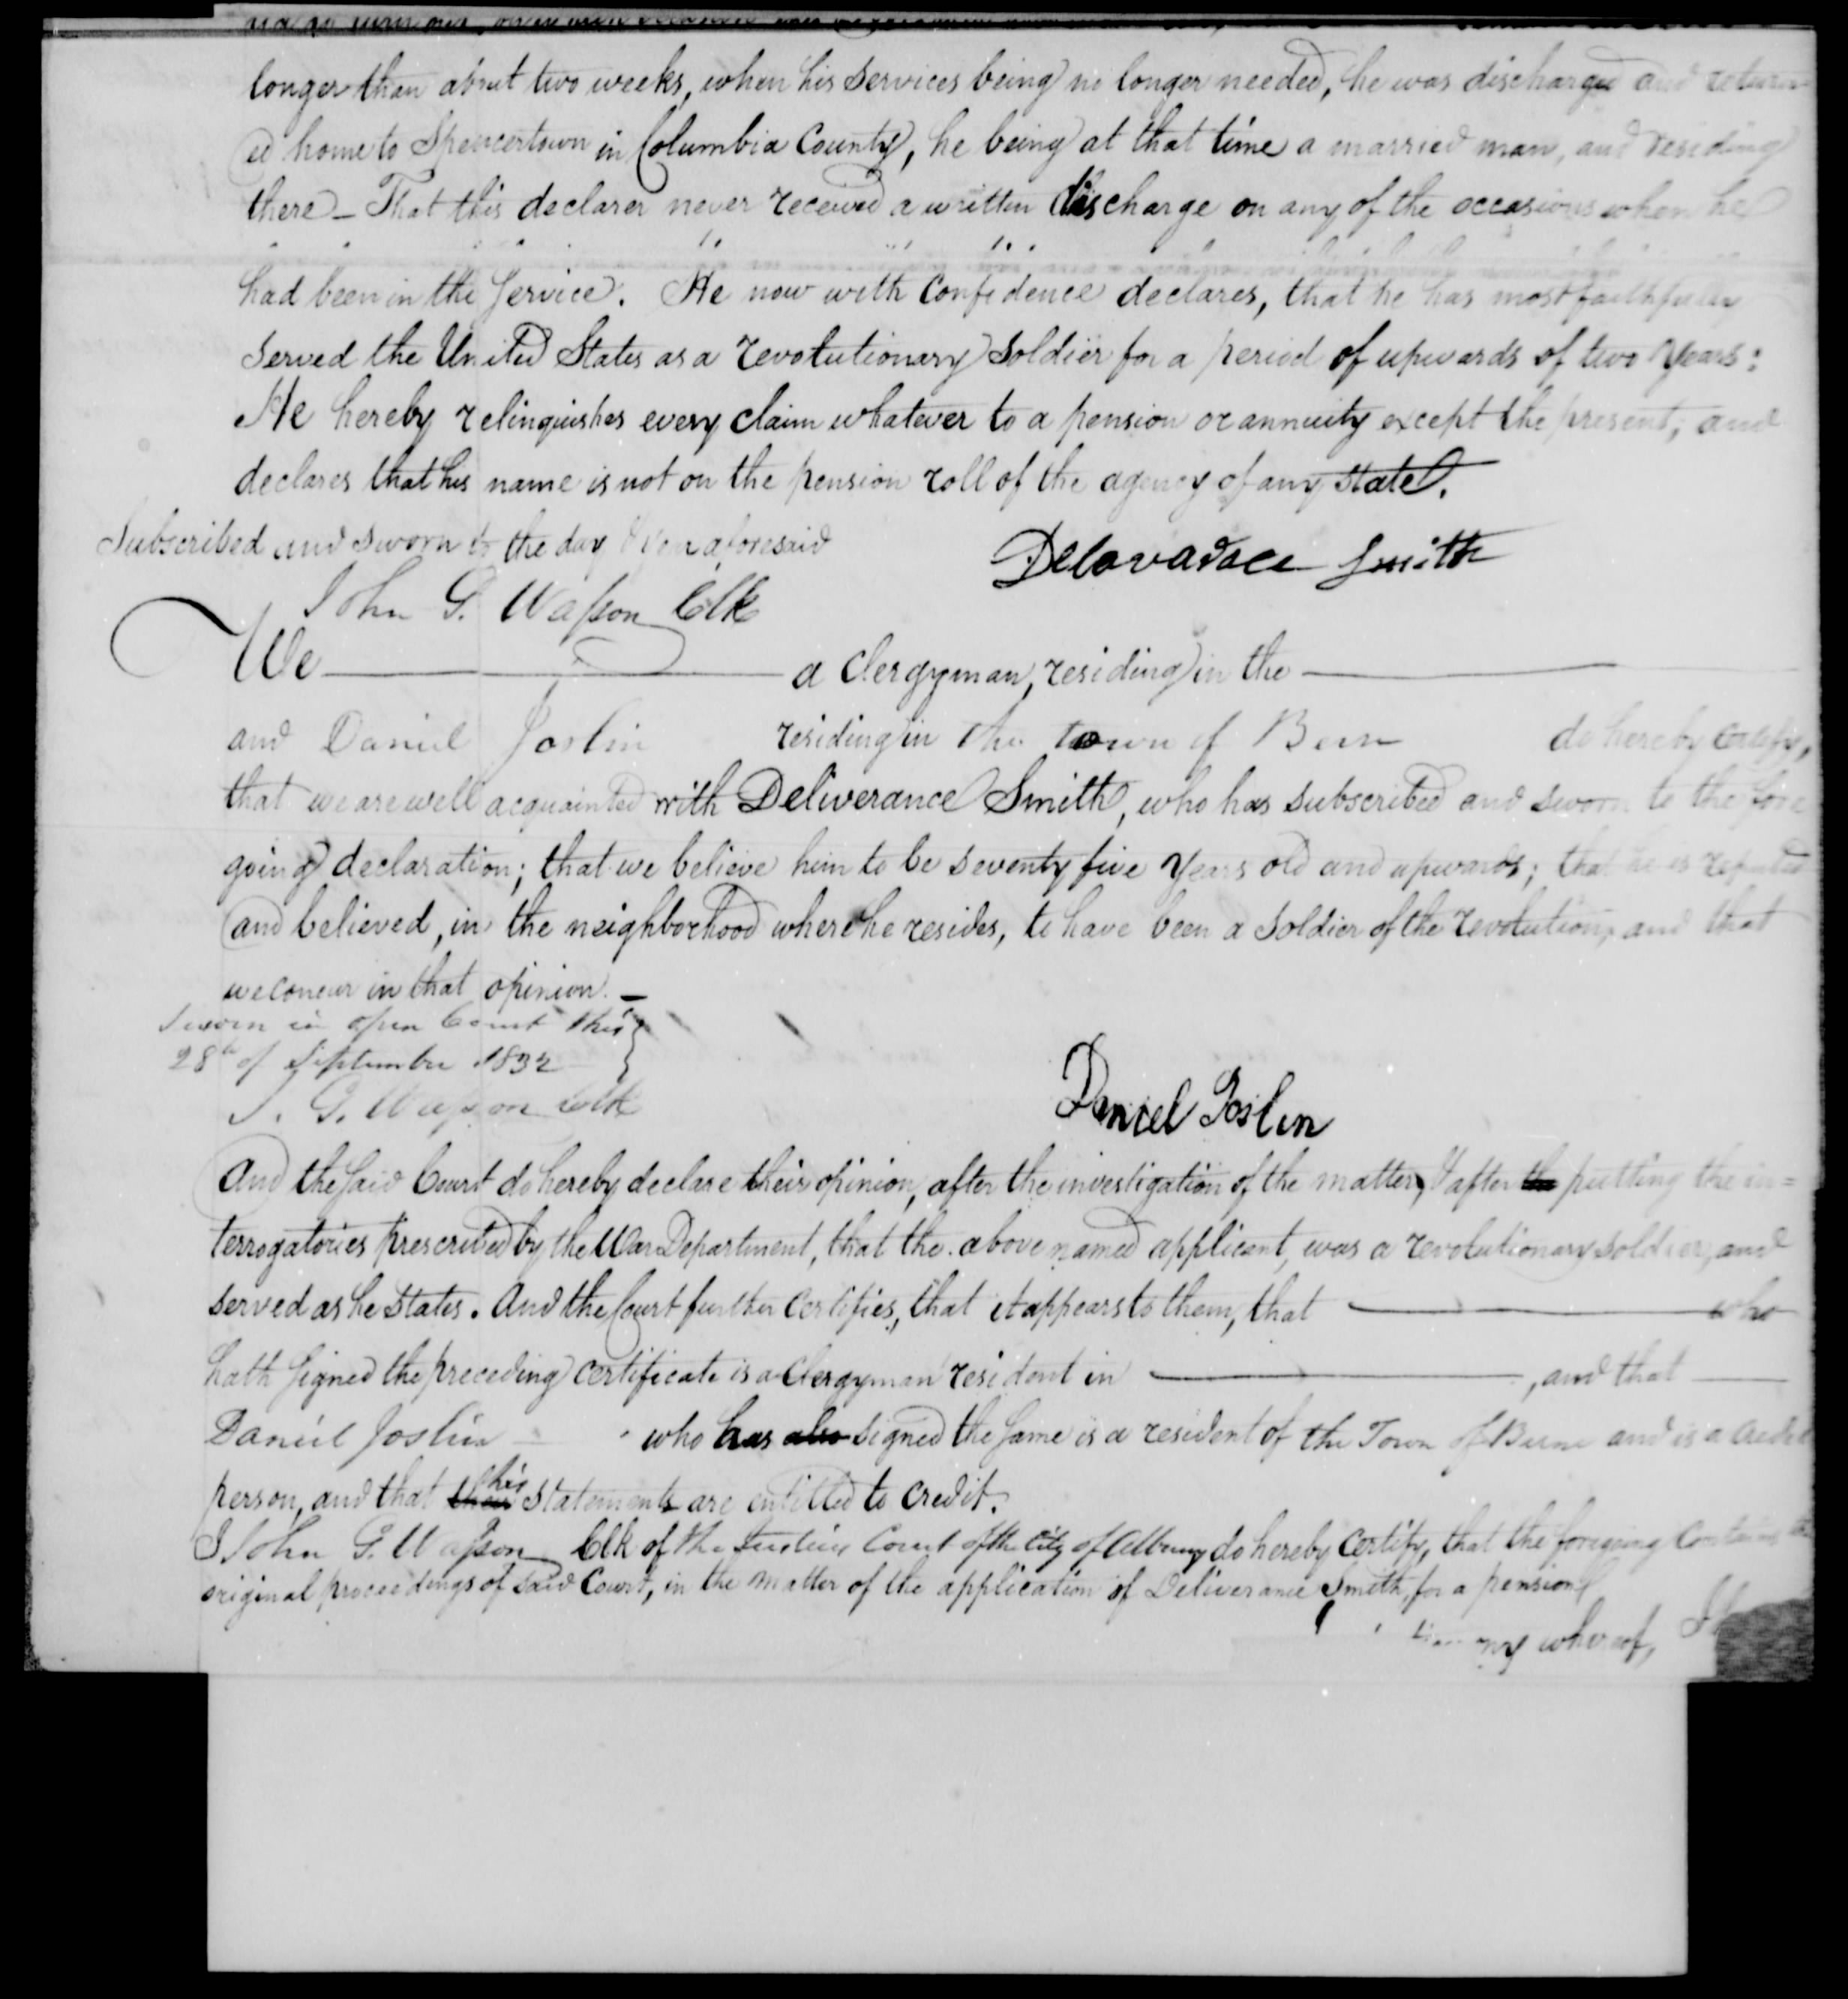 longer than about two weeks, when his services being no longer needed, he was discharged and return
ed home to Spencertown in Columbia County, he being at that time a married man, and residing
there – That this declarer never received a written discharge on any of the occasions when he
had been in the service. He now with confidence declares, that he has most faithfully
served the United States as a revolutionary soldier for a period of upwards of two years:
He hereby relinquishes every claim whatever to a pension or annuity except the present, and
declares that his name is not on the pension roll of the agency of any state.
Subscribed and sworn to the day & year aforesaid
Delavarace Smith
John G. Wasson Clk
We a clergyman, residing in the
and Daniel Joslin residing in the town of Bern do hereby certify,
that we are well acquainted with Deliverance Smith, who has subscribed and sworn to the fore
going declaration; that we believe him to be seventy five years old and upwards; that he is reputed
and believed, in the neighborhood where he resides, to have been a soldier of the revolution, and that
we concur in that opinion. –
Sworn in open Court this
28th of September 1832
J. G. Wasson Clk
Daniel Joslin
And the said Court do hereby declare their opinion, after the investigation of the matter, & after the putting the in=
terrogatories prescribed by the War Department, that the above named applicant, was a revolutionary soldier, and
served as he states. And the Court further certifies, that it appears to them, that who
hath signed the preceding certificate is a Clergyman resident in , and that
Daniel Joslin who has also signed the same is a resident of the Town of Berne and is a
person, and that their his statements are entitled to credit.
I John G. Wasson Clk of the Justices Court of the City of Albany do hereby certify, that the foregoing contains the
original proceedings of said Court, in the matter of the application of Deliverance Smith, for a pension
whereof, I